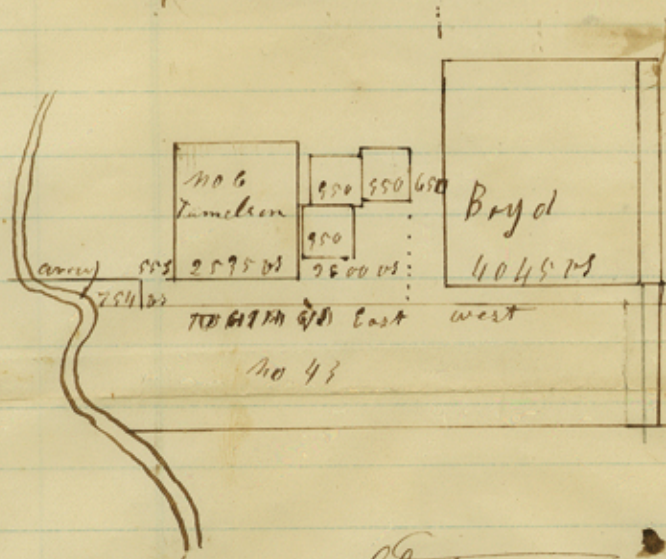 No 6
Tumelson
2595 vs
950
550
650
950
2600 vs
Boyd
4045 vs
553
754 vs
East west
No 43